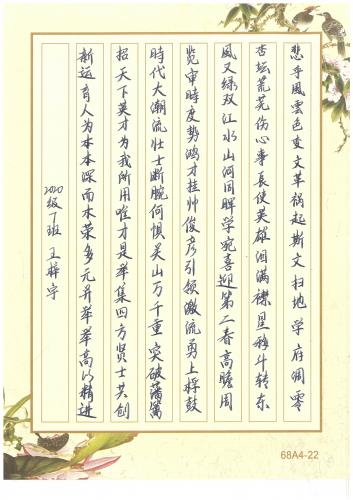 悲乎風雲色变文革祸起斯文扫地学府凋零
杏坛荒芜伤心事長使英雄泪满襟星移斗转东
風又绿双江水山河同晖学宛喜迎第二春高瞻周
览审時度势鸿才挂帅俊彦引领激流勇上桴鼓
時代大潮流壮士断腕何惧关山万千重突破藩篱
招天下英才为我所用唯才是举集四方贤士共创
新运育人为本本深而木荣多元并举举高的精进
2020级7班 王梓宇
68A4-22